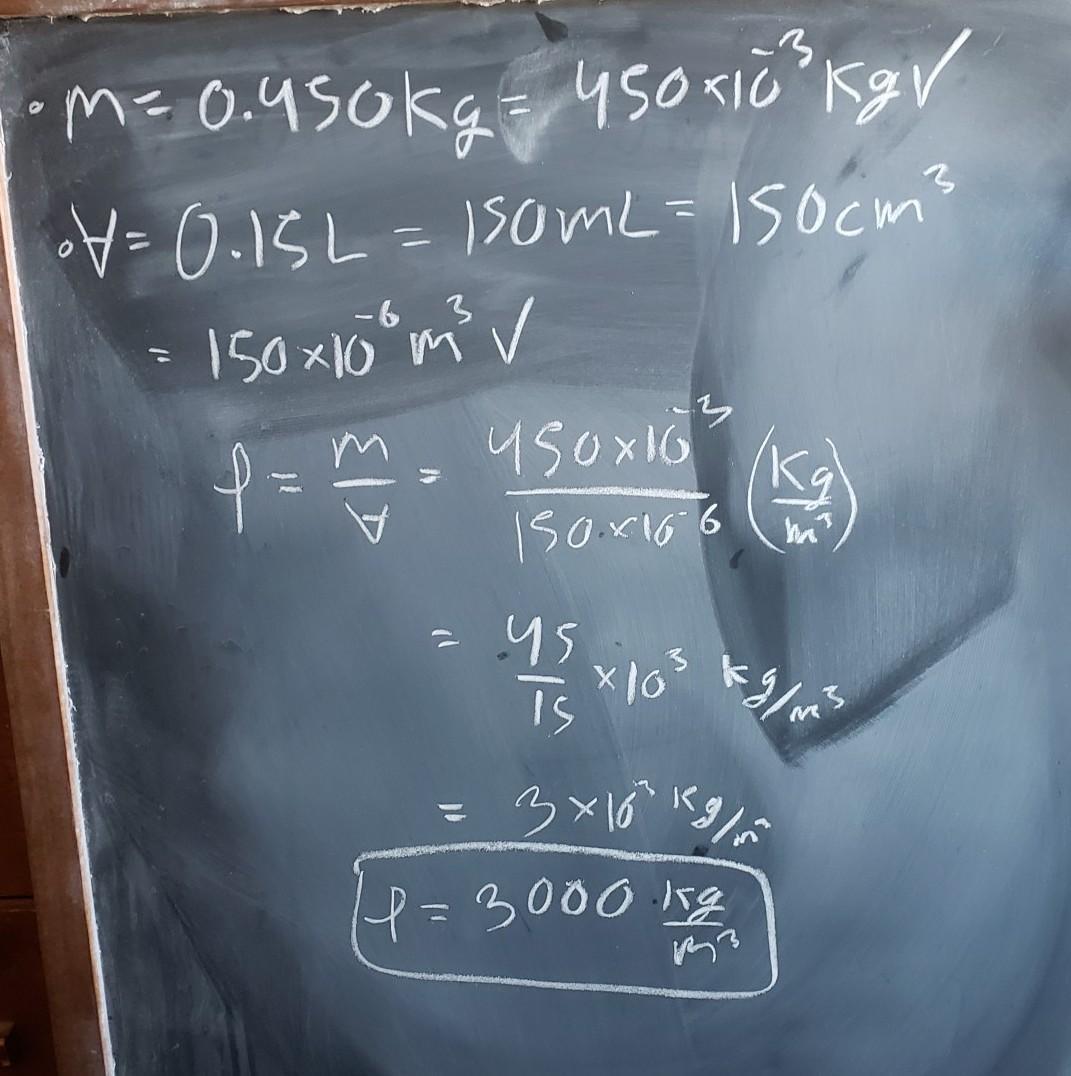 • m = 0.450kg = 450×10⁻³ Kg ✓
• V = 0.15L = 150mL = 150cm³
= 150×10⁻⁶ m³ ✓
ρ = m/V = 450×10⁻³ / 150×10⁻⁶ (Kg/m³)
= 45/15 ×10³ kg/m³
= 3×10³ Kg/m³
ρ = 3000 kg/m³